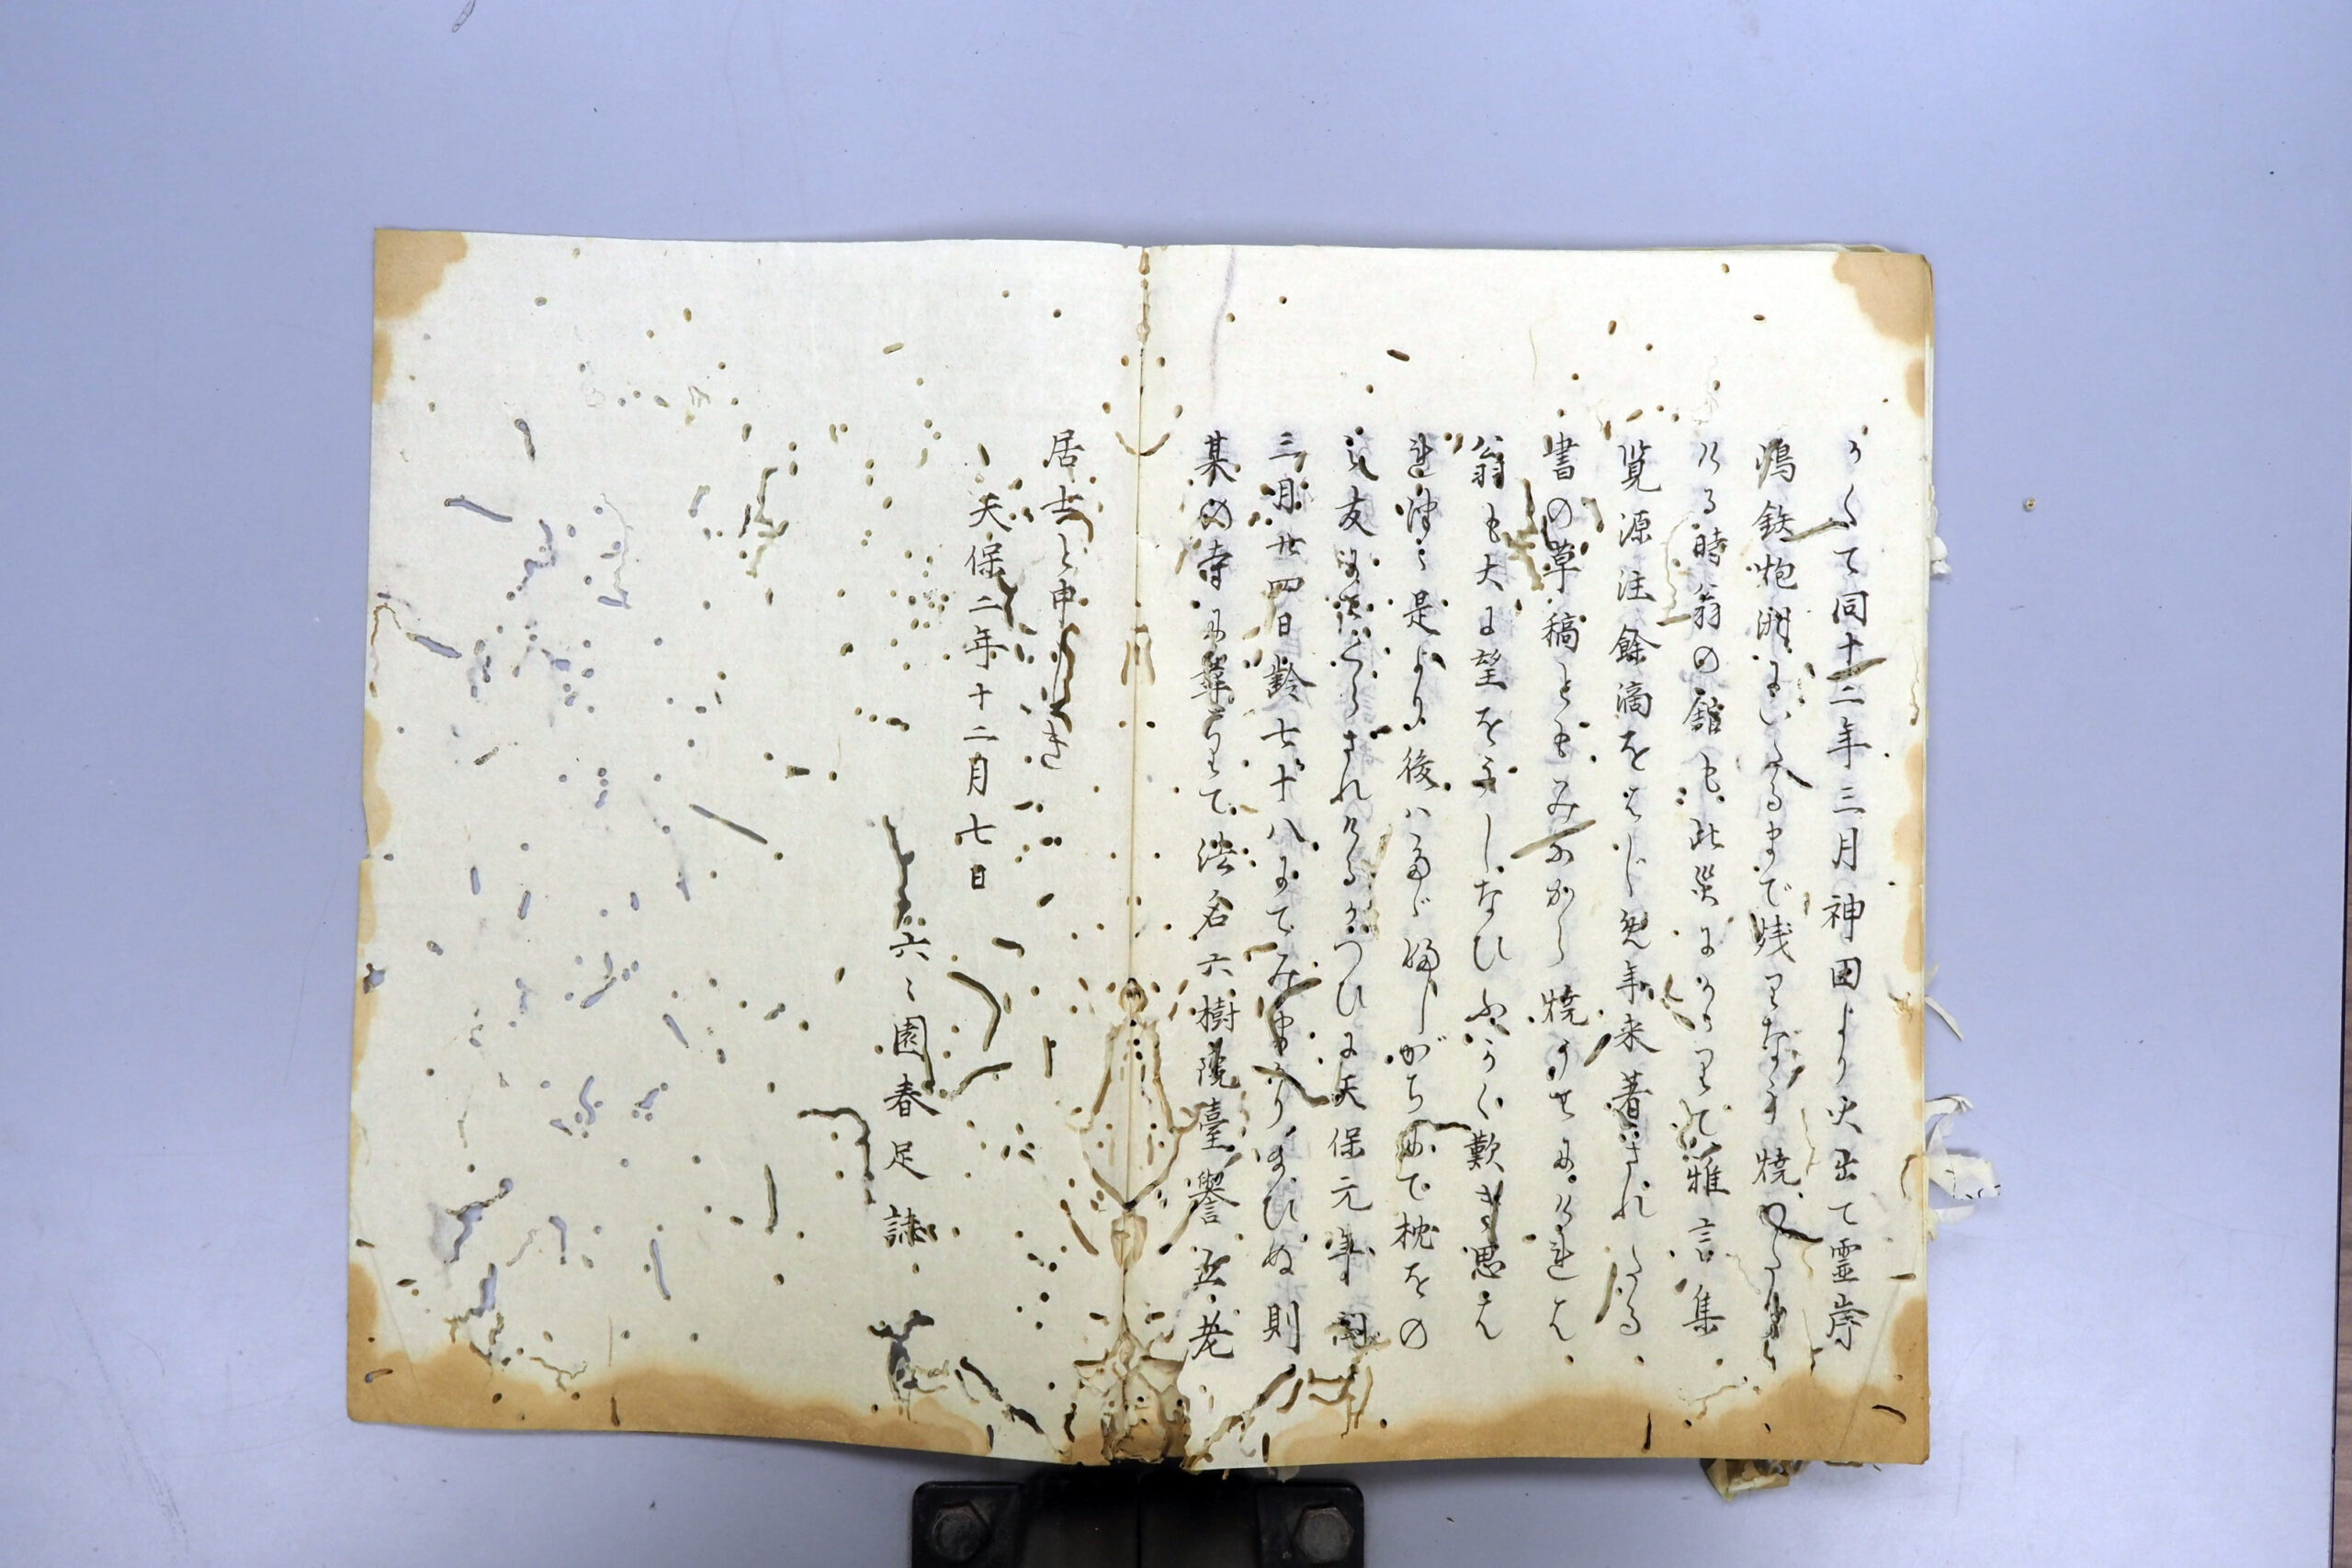 かくて同十二年三月神田より火出て霊岸
嶋鉄炮洲にいたるまで残りなう焼わたり
ける時翁の館も此災にかゝりて雅言集
覧源注餘滴をはじめ年来著されたる
書の草稿ともみなから焼うせにけれは
翁も大に望をうしなひふかく歎き思は
れ是より後はたゞ臥しがちにて枕をの
み友に されけるがつひに天保元年閏
三月廿四日齢七十八にてみまかり給ひぬ則
某の寺に葬りて法名六樹院臺譽五老
居士と申しき
天保二年十二月七日
六々園春足誌